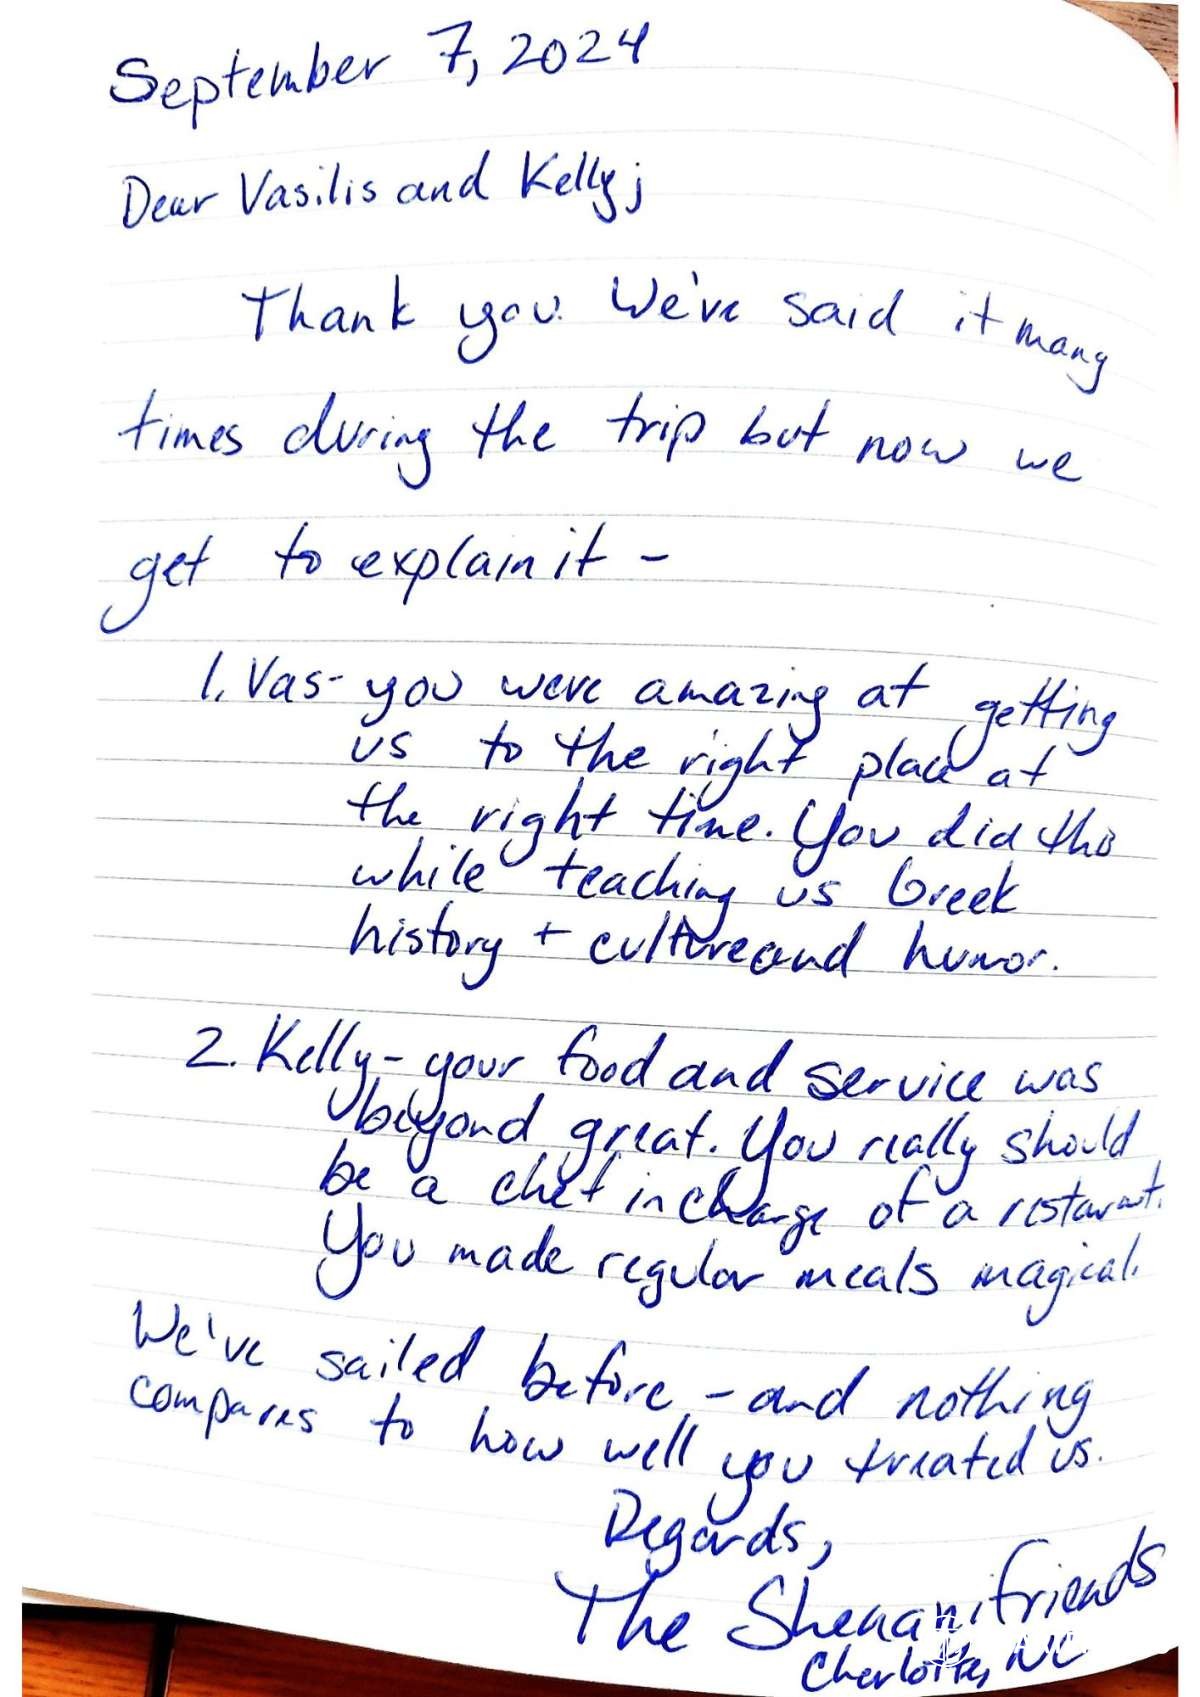 September 7, 2024
Dear Vasilis and Kelly;
Thank you. We've said it many
times during the trip but now we
get to explain it -
1. Vas- you were amazing at getting
us to the right place at
the right time. You did this
while teaching us Greek
history + culture and humor.
2. Kelly- your food and service was
beyond great. You really should
be a chef in charge of a restaraunt.
You made regular meals magical.
We've sailed before - and nothing
compares to how well you treated us.
Regards,
The Shenanifriends
Charlotte, NC